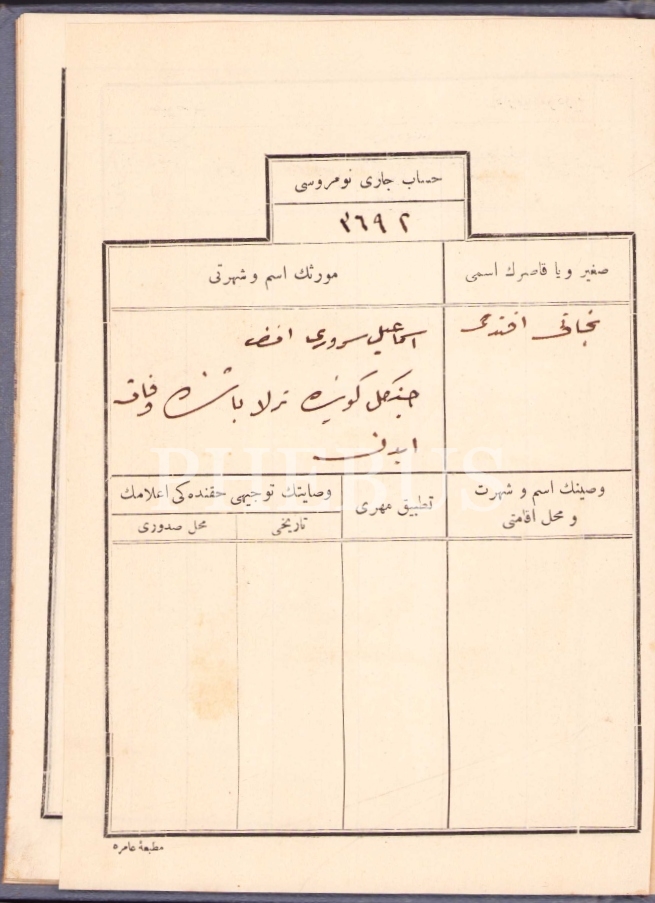 حساب جاری نومروسی
٣٦٩٢
صغیر ویا قاصرك اسمی
مورثك اسم وشهرتی
نجاتی افندی
اسماعیل سروری افندی
چنكل كوینده ترلا باشنده وفات
ایدن
PHEBUS
وصینك اسم و شهرت
و محل اقامتی
تطبیق مهری
وصایتك توجیهی حقنده كی اعلامك
تاریخی
محل صدوری
مطبعۀ عامره